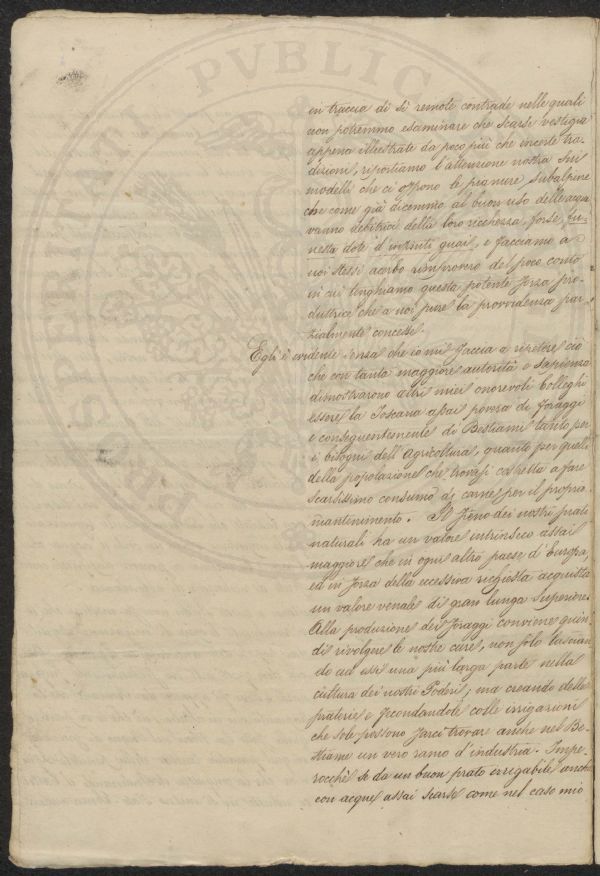 in traccia di sì remote contrade nelle quali
non potremmo esaminare che scarse vestigia
appena illustrate da poco più che incerte tra-
dizioni, riportiamo l'attenzione nostra sui
modelli che ci offrono le pianure Subalpine
che come già dicemmo al buon uso delle acque
vanno debitrici della loro ricchezza, forse fu-
nesta dote d'infiniti guai, e facciamo a
noi stessi acerbo rimprovero del poco conto
in cui tenghiamo questa potente forza pro-
duttrice che a noi pure la provvidenza par-
zialmente concesse.
Egli è evidente senza che io mi faccia a ripetere ciò
che con tanta maggiore autorità e Sapienza
dimostrarono altri miei onorevoli Colleghi
essere la Toscana assai povera di Foraggi
e conseguentemente di Bestiami tanto per
i bisogni dell'Agricoltura, quanto per quelli
della popolazione che trovasi costretta a fare
scarsissimo consumo di carne per il proprio
mantenimento. Il fieno dei nostri prati
naturali ha un valore intrinseco assai
maggiore che in ogni altro paese d'Europa,
ed in forza della eccessiva richiesta acquista
un valore venale di gran lunga superiore.
Alla produzione dei Foraggi conviene quin-
di rivolgere le nostre cure, non solo lascian-
do ad essi una più larga parte nella
cultura dei nostri Poderi, ma creando delle
praterie e fecondandole colle irrigazioni
che sole possono farci trovare anche nel Be-
stiame un vero ramo d'industria. Impe-
rocchè se da un buon prato irrigabile anche
con acque assai scarse come nel caso mio